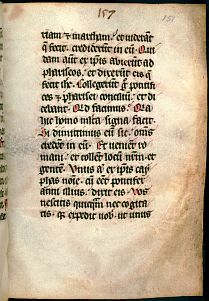 157
151
riam et martham: et viderant
q fecit. crediderunt in eū. Qui
dam aūt ex ipis abierūt ad
phariseos. et dixerūt eis q
fecit ihc. Collegerūt g pontifi
ces et pharisei conciliū. et di
cebant. Qd facimus. Qa
hic homo multa signa facit.
Si dimittimus eū sic. oms
credent in eū. Et venient ro
mani. et tollēt locū nrm et
gentē. Unus aū ex ipis cay
phas noīe. cū eēt pontifex
anni illius. dixit eis. Vos
nescitis quicqm nec cogita
tis. qz expedit vob. ut unus